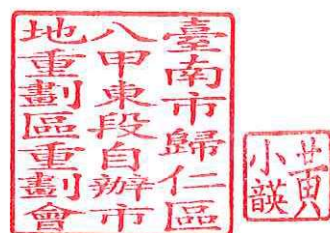 臺南市歸仁區
八甲東段自辦市
地重劃區重劃會
黃
小韺